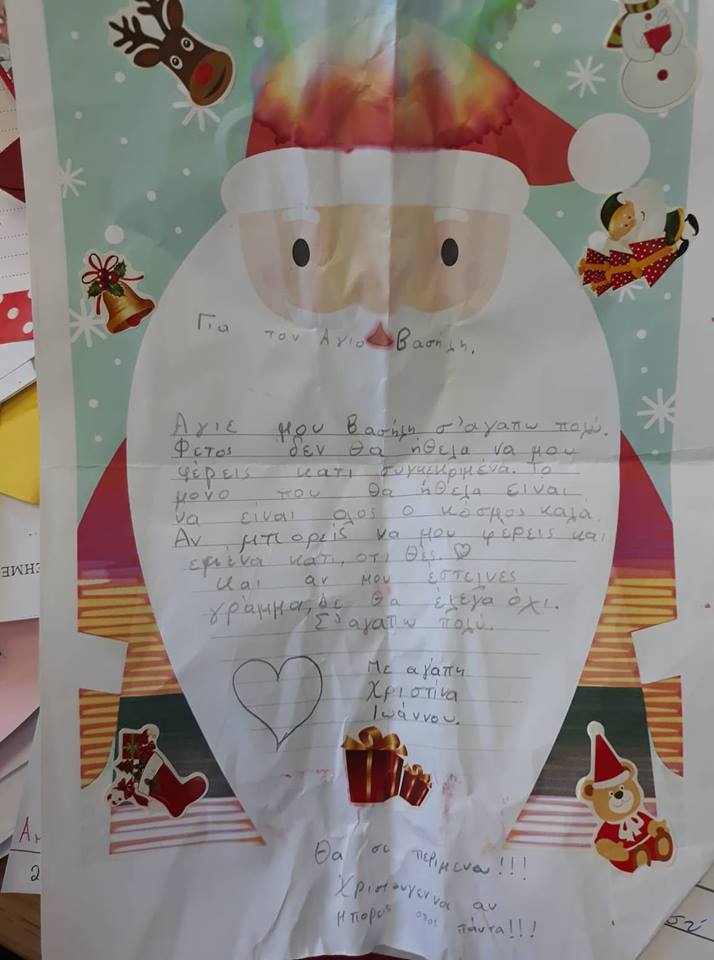 Για τον Αγιο Βασήλη.
Αγιε μου Βασήλη σ'αγαπω πολύ.
Φετος δεν θα ήθελα να μου
φέρεις κατι συγκεκριμένα. Το
μονο που θα ήθελα ειναι
να είναι ολος ο κόσμος καλα.
Αν μπορείς να μου φέρεις και
εμένα κάτι, οτι θες.
και αν μου έστελνες
γράμμα, δε θα έλεγα όχι.
Σ'αγαπω πολύ.
Με αγάπη
Χριστίνα
Ιωάννου.
Θα σε περιμενω!!!
Χριστουγεννα αν
μπορεις πάντα!!!